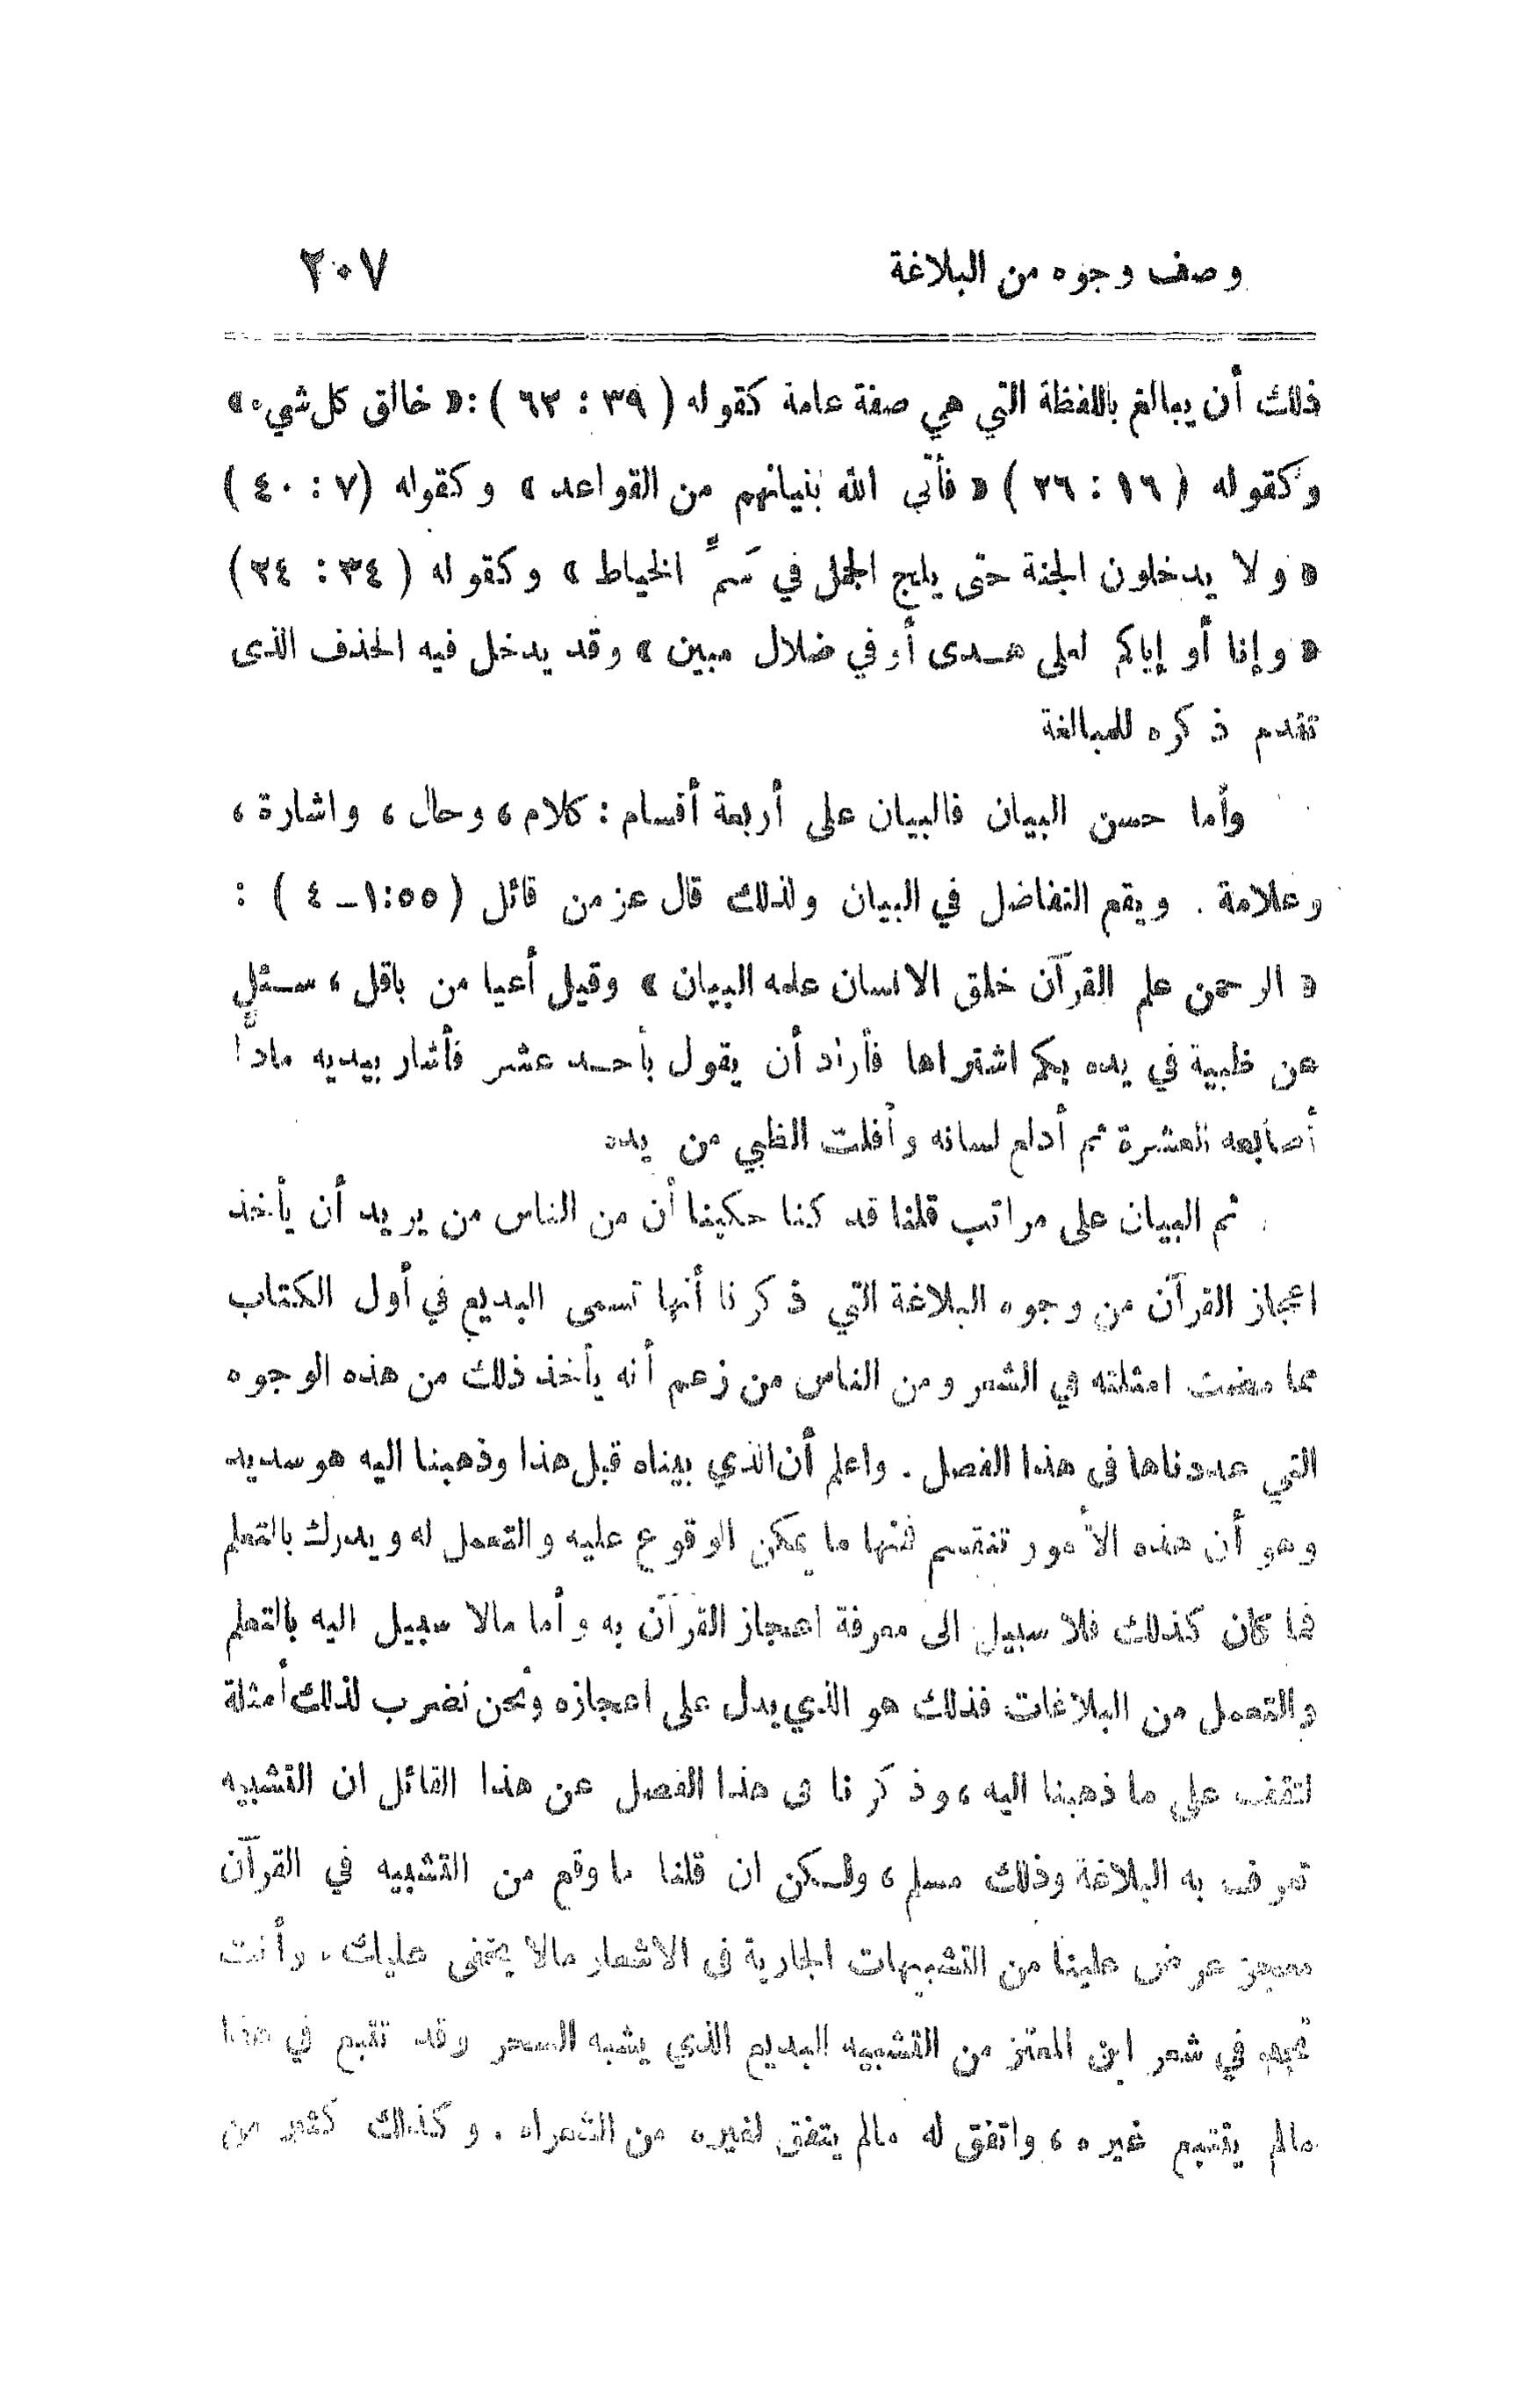 وصف وجوه من البلاغة ٢٠٧
ذلك أن يبالغ باللفظة التي هي صفة عامة كقوله ( ٣٩ : ٦٢ ) : « خالق كل شيء »
وكقوله ( ١٦ : ٢٦ ) « فأتى الله بنيانهم من القواعد » وكقوله (٧ : ٤٠ )
« ولا يدخلون الجنة حتى يلج الجمل في سَمِّ الخياط » وكقوله ( ٣٤ : ٢٤ )
« وإنا أو إياكم لعلى هدى أو في ضلال مبين » وقد يدخل فيه الحذف الذى
تقدم ذكره للمبالغة
وأما حسن البيان فالبيان على أربعة أقسام : كلام ، وحال ، واشارة ،
وعلامة . ويقع التفاضل في البيان ولذلك قال عز من قائل ( ٥٥:١ــ ٤ ) :
« الرحمن علم القرآن خلق الانسان علمه البيان » وقيل أعيا من باقل ، سئل
عن ظبية في يده بكم اشتراها فأراد أن يقول بأحد عشر فأشار بيديه مادّاً
أصابعه العشرة ثم أدلع لسانه وأفلت الظبي من يده
ثم البيان على مراتب قلنا قد كنا حكينا أن من الناس من يريد أن يأخذ
اعجاز القرآن من وجوه البلاغة التي ذكرنا أنها تسمى البديع في أول الكتاب
مما مضت امثلته في الشعر ومن الناس من زعم أنه يأخذ ذلك من هذه الوجوه
التي عددناها فى هذا الفصل . واعلم أن الذي بيناه قبل هذا وذهبنا اليه هو سديد
وهو أن هذه الأمور تنقسم فمنها ما يمكن الوقوع عليه والتعمل له ويدرك بالتعلم
فما كان كذلك فلا سبيل الى معرفة اعجاز القرآن به وأما مالا سبيل اليه بالتعلم
والتعمل من البلاغات فذلك هو الذي يدل على اعجازه ونحن نضرب لذلك أمثلة
لتقف على ما ذهبنا اليه ، وذكرنا فى هذا الفصل عن هذا القائل ان التشبيه
تعرف به البلاغة وذلك مسلم ، ولكن ان قلنا ما وقع من التشبيه في القرآن
معجز عرض علينا من التشبيهات الجارية فى الاشعار مالا يخفى عليك . وأنت
تجد في شعر ابن المعتز من التشبيه البديع الذي يشبه السحر وقد تتبع في هذا
مالم يتتبع غيره ، واتفق له مالم يتفق لغيره من الشعراء . وكذلك كثير من